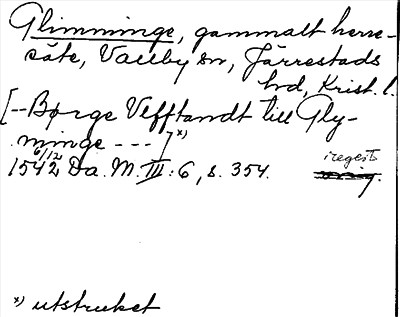 Glimminge, gammalt herre-
säte, Vallby sn, Järrestads
hd, Krist. l.
[--Børge Vefftandt till Gly-
minge ---]x)
6/12
1542 Da. M. III: 6, s. 354.
x) utstruket